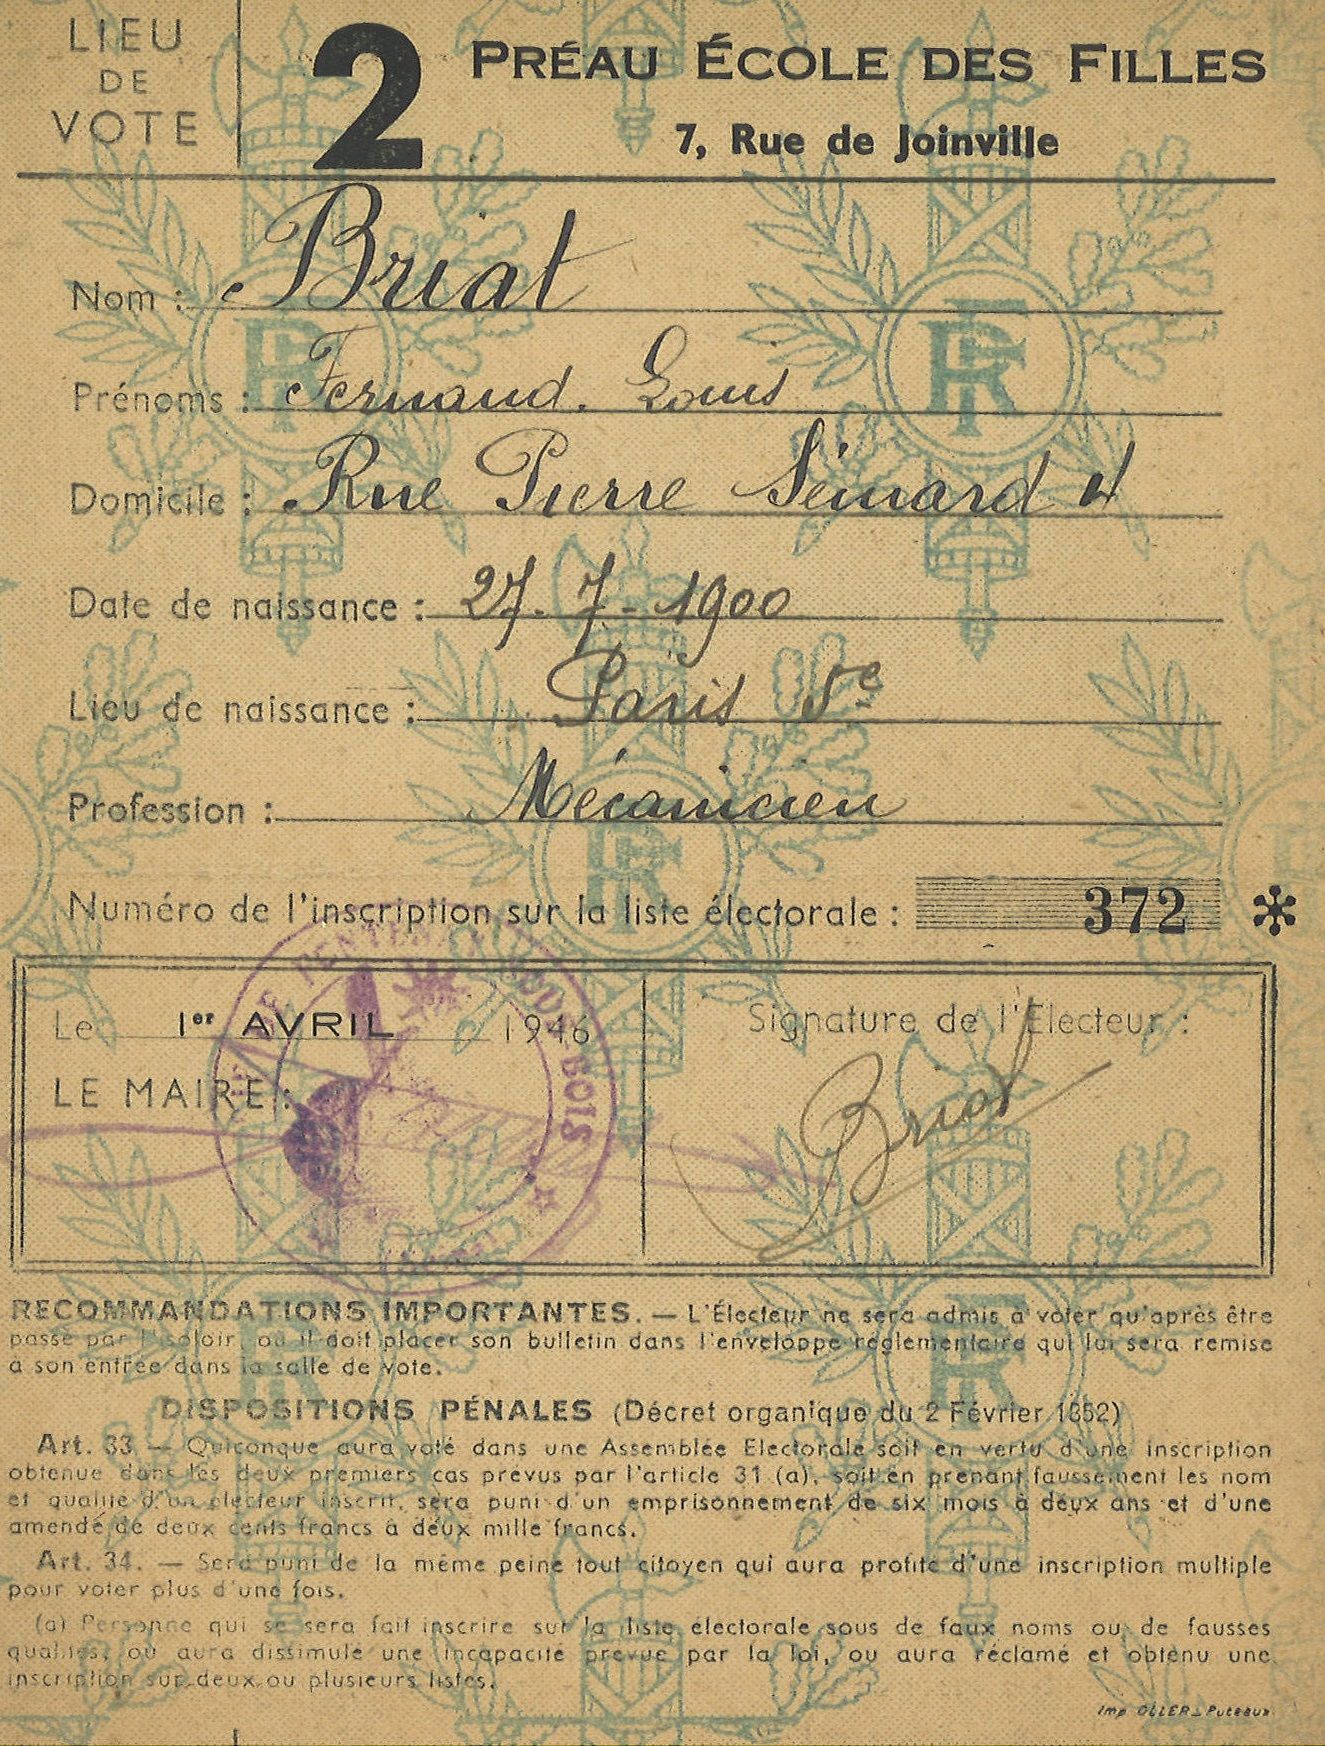 LIEU
DE
VOTE
2
PRÉAU ÉCOLE DES FILLES
7, Rue de Joinville
Nom : Briat
Prénoms : Fernand. Louis
Domicile : Rue Pierre Sémard 4
Date de naissance : 27-7-1900
Lieu de naissance : Paris 5e
Profession : Mécanicien
Numéro de l'inscription sur la liste électorale : 372 *
Le 1er AVRIL 1946
LE MAIRE :
FONTENAY SOUS BOIS
(Seine)
Signature de l'Électeur :
Briat
RECOMMANDATIONS IMPORTANTES. — L'Électeur ne sera admis à voter qu'après être
passé par l'isoloir, où il doit placer son bulletin dans l'enveloppe réglementaire qui lui sera remise
à son entrée dans la salle de vote.
DISPOSITIONS PÉNALES (Décret organique du 2 Février 1852)
Art. 33. — Quiconque aura voté dans une Assemblée Électorale soit en vertu d'une inscription
obtenue dans les deux premiers cas prévus par l'article 31 (a), soit en prenant faussement les nom
et qualité d'un électeur inscrit, sera puni d'un emprisonnement de six mois à deux ans et d'une
amende de deux cents francs à deux mille francs.
Art. 34. — Sera puni de la même peine tout citoyen qui aura profité d'une inscription multiple
pour voter plus d'une fois.
(a) Personne qui se sera fait inscrire sur la liste électorale sous de faux noms ou de fausses
qualités, ou aura dissimulé une incapacité prévue par la loi, ou aura réclamé et obtenu une
inscription sur deux ou plusieurs listes.
Imp OLLER_Puteaux